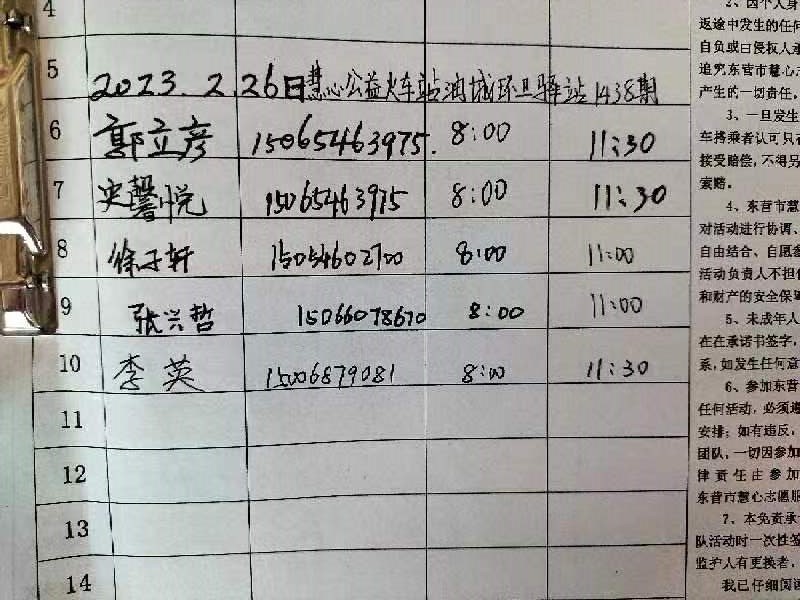 4
5 2023.2.26日慧心公益火车站油城环卫驿站1438期
6 郭立彦 15065463975. 8:00 11:30
7 史馨悦 15065463975 8:00 11:30
8 徐子轩 15054602700 8:00 11:00
9 张兴哲 15066078670 8:00 11:00
10 李英 15006879081 8:00 11:30
11
12
13
14
2、因个人身
返途中发生的任何
自负或由侵权人承
追究东营市慧心志
产生的一切责任，
3、一旦发生
车搭乘者认可只在
接受赔偿，不得另
索赔。
4、东营市慧
对活动进行协调、
自由结合、自愿参
活动负责人不担任
和财产的安全保障
5、未成年人
在在承诺书签字，
系，如发生任何意
6、参加东营
任何活动，必须遵
安排；如有违反，
团队，一切因参加
律责任由参加
东营市慧心志愿服
7、本免责承
队活动时一次性签
监护人有更换者，
我已仔细阅读